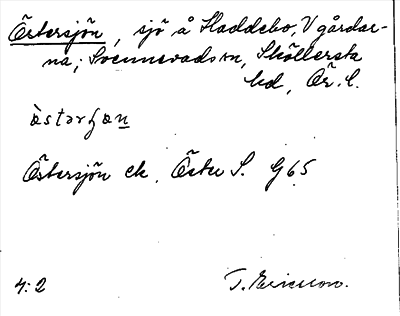 Östersjön, sjö å Haddebo, V gårdar-
na; Svennevads sn, Sköllersta
hd, Ör. l.
östərʃön
Östersjön ek. Östen S. G65
4:2 T. Ericsson.